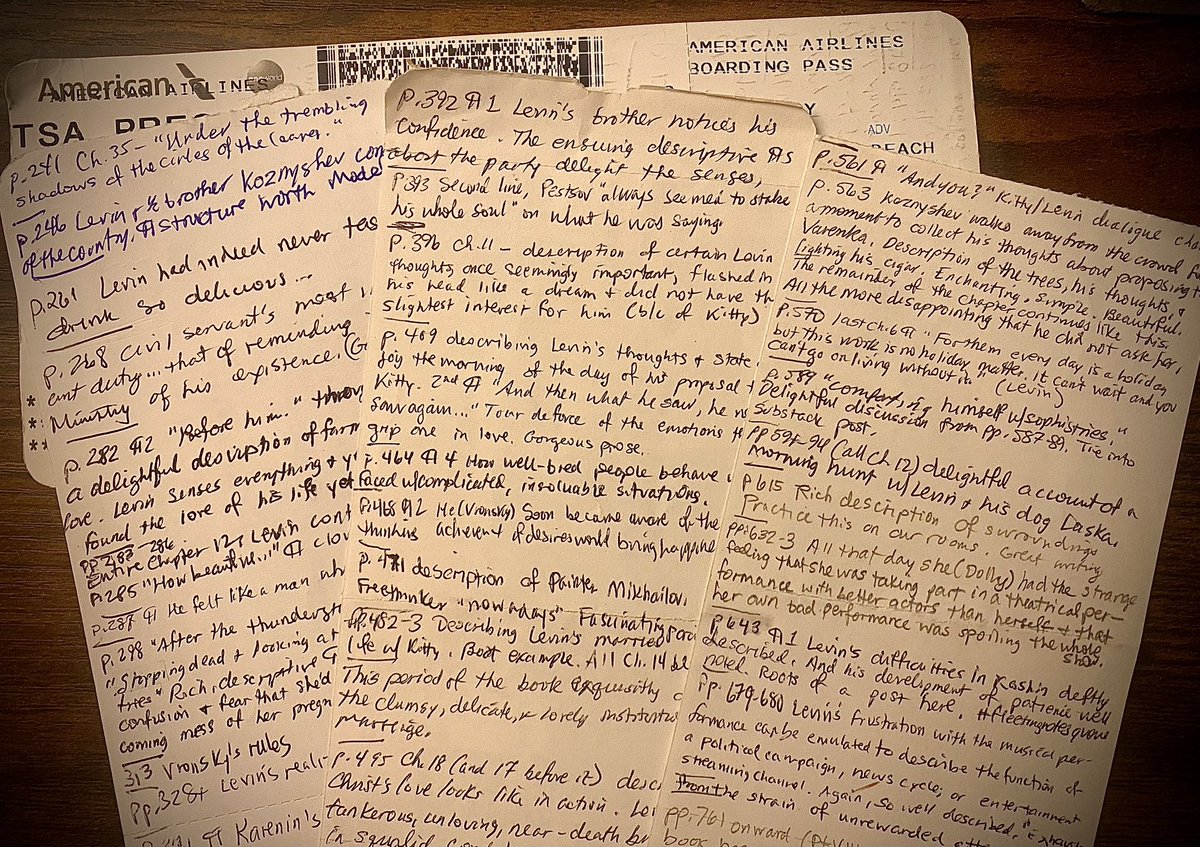 American
AMERICAN AIRLINES
TSA PRE
AMERICAN AIRLINES
BOARDING PASS
ADV
BEACH
p.241 Ch. 35 - "Under the trembling
shadows of the circles of the leaves."
p.246 Levin & ½ brother Koznyshev
of the county. ¶ structure worth
p.261 Levin had indeed never
drink so delicious...
p.268 civil servant's most
* ent duty... that of reminding
* Ministry of his existence.
**
p.282 ¶2 "Before him."
a delightful description of
love. Levin senses everything &
found the love of his life
pp 283-286
Entire Chapter 12, Levin
p.285 "How beautiful..." ¶
p.287 ¶ He felt like a man
p.298 "After the
"Stopping dead & looking at
tries" Rich, descriptive
confusion & fear that she'd
coming mess of her
313 Vronsky's rules
Pp. 328+ Levin's
¶ Karenin's
p.392 ¶1 Levin's brother notices his
confidence. The ensuing descriptive ¶s
about the party delight the senses,
p.393 Second line, Pestsov "always seemed to stake
his whole soul" on what he was saying.
p.396 Ch.11 - description of certain Levin
thoughts, once seemingly important, flashed in
his head like a dream & did not have the
slightest interest for him (b/c of Kitty)
p.409 describing Levin's thoughts & state
joy the morning of the day of his proposal
Kitty. 2nd ¶ "And then what he saw, he
saw again..." Tour de force of the emotions
grip one in love. Gorgeous prose.
p.464 ¶4 How well-bred people behave
faced w/complicated, insoluble situations.
¶2 He (Vronsky) soon became aware of the
description of painter Mikhailov.
Freethinker "nowadays" Fascinating
pp.482-3 Describing Levin's married
life w/ Kitty. Boat example. All Ch. 14
This period of the book exquisitely
the clumsy, delicate, & lovely
marriage.
p.495 Ch.18 (and 17 before it)
Christ's love looks like in action.
tankerous, unloving, near-death
In squalid
p.561 ¶ "And you?" Kitty/Levin dialogue
p.563 Koznyshev walks away from the crowd
a moment to collect his thoughts about proposing to
Varenka. Description of the trees, his thoughts, &
lighting his cigar. Enchanting. Simple. Beautiful.
The remainder of the chapter continues like this.
All the more disappointing that he did not ask her.
p.570 last ch.6 ¶ "For them every day is a holiday
but this work is no holiday matter, it can't wait and you
can't go on living without it." (Levin)
p.589 "comforting himself w/sophistries."
Delightful discussion from pp. 587-89. Tie into
Substack post.
(all Ch 12) delightful account of a
morning hunt w/Levin & his dog Laska.
p615 Rich description of surroundings
Practice this on our rooms. Great writing
pp:632-3 All that day she (Dolly) had the strange
feeling that she was taking part in a theatrical per-
formance with better actors than herself & that
her own bad performance was spoiling the whole
show.
p.643 ¶1 Levin's difficulties in Kashin deftly
described. And his development of patience well
noted. Roots of a post here.
pp.679-680 Levin's frustration with the musical per-
formance can be emulated to describe the function of
a political campaign, news cycle, or entertainment
streaming channel. Again, so well described.
from the strain of unrewarded
pp.761 onward
book